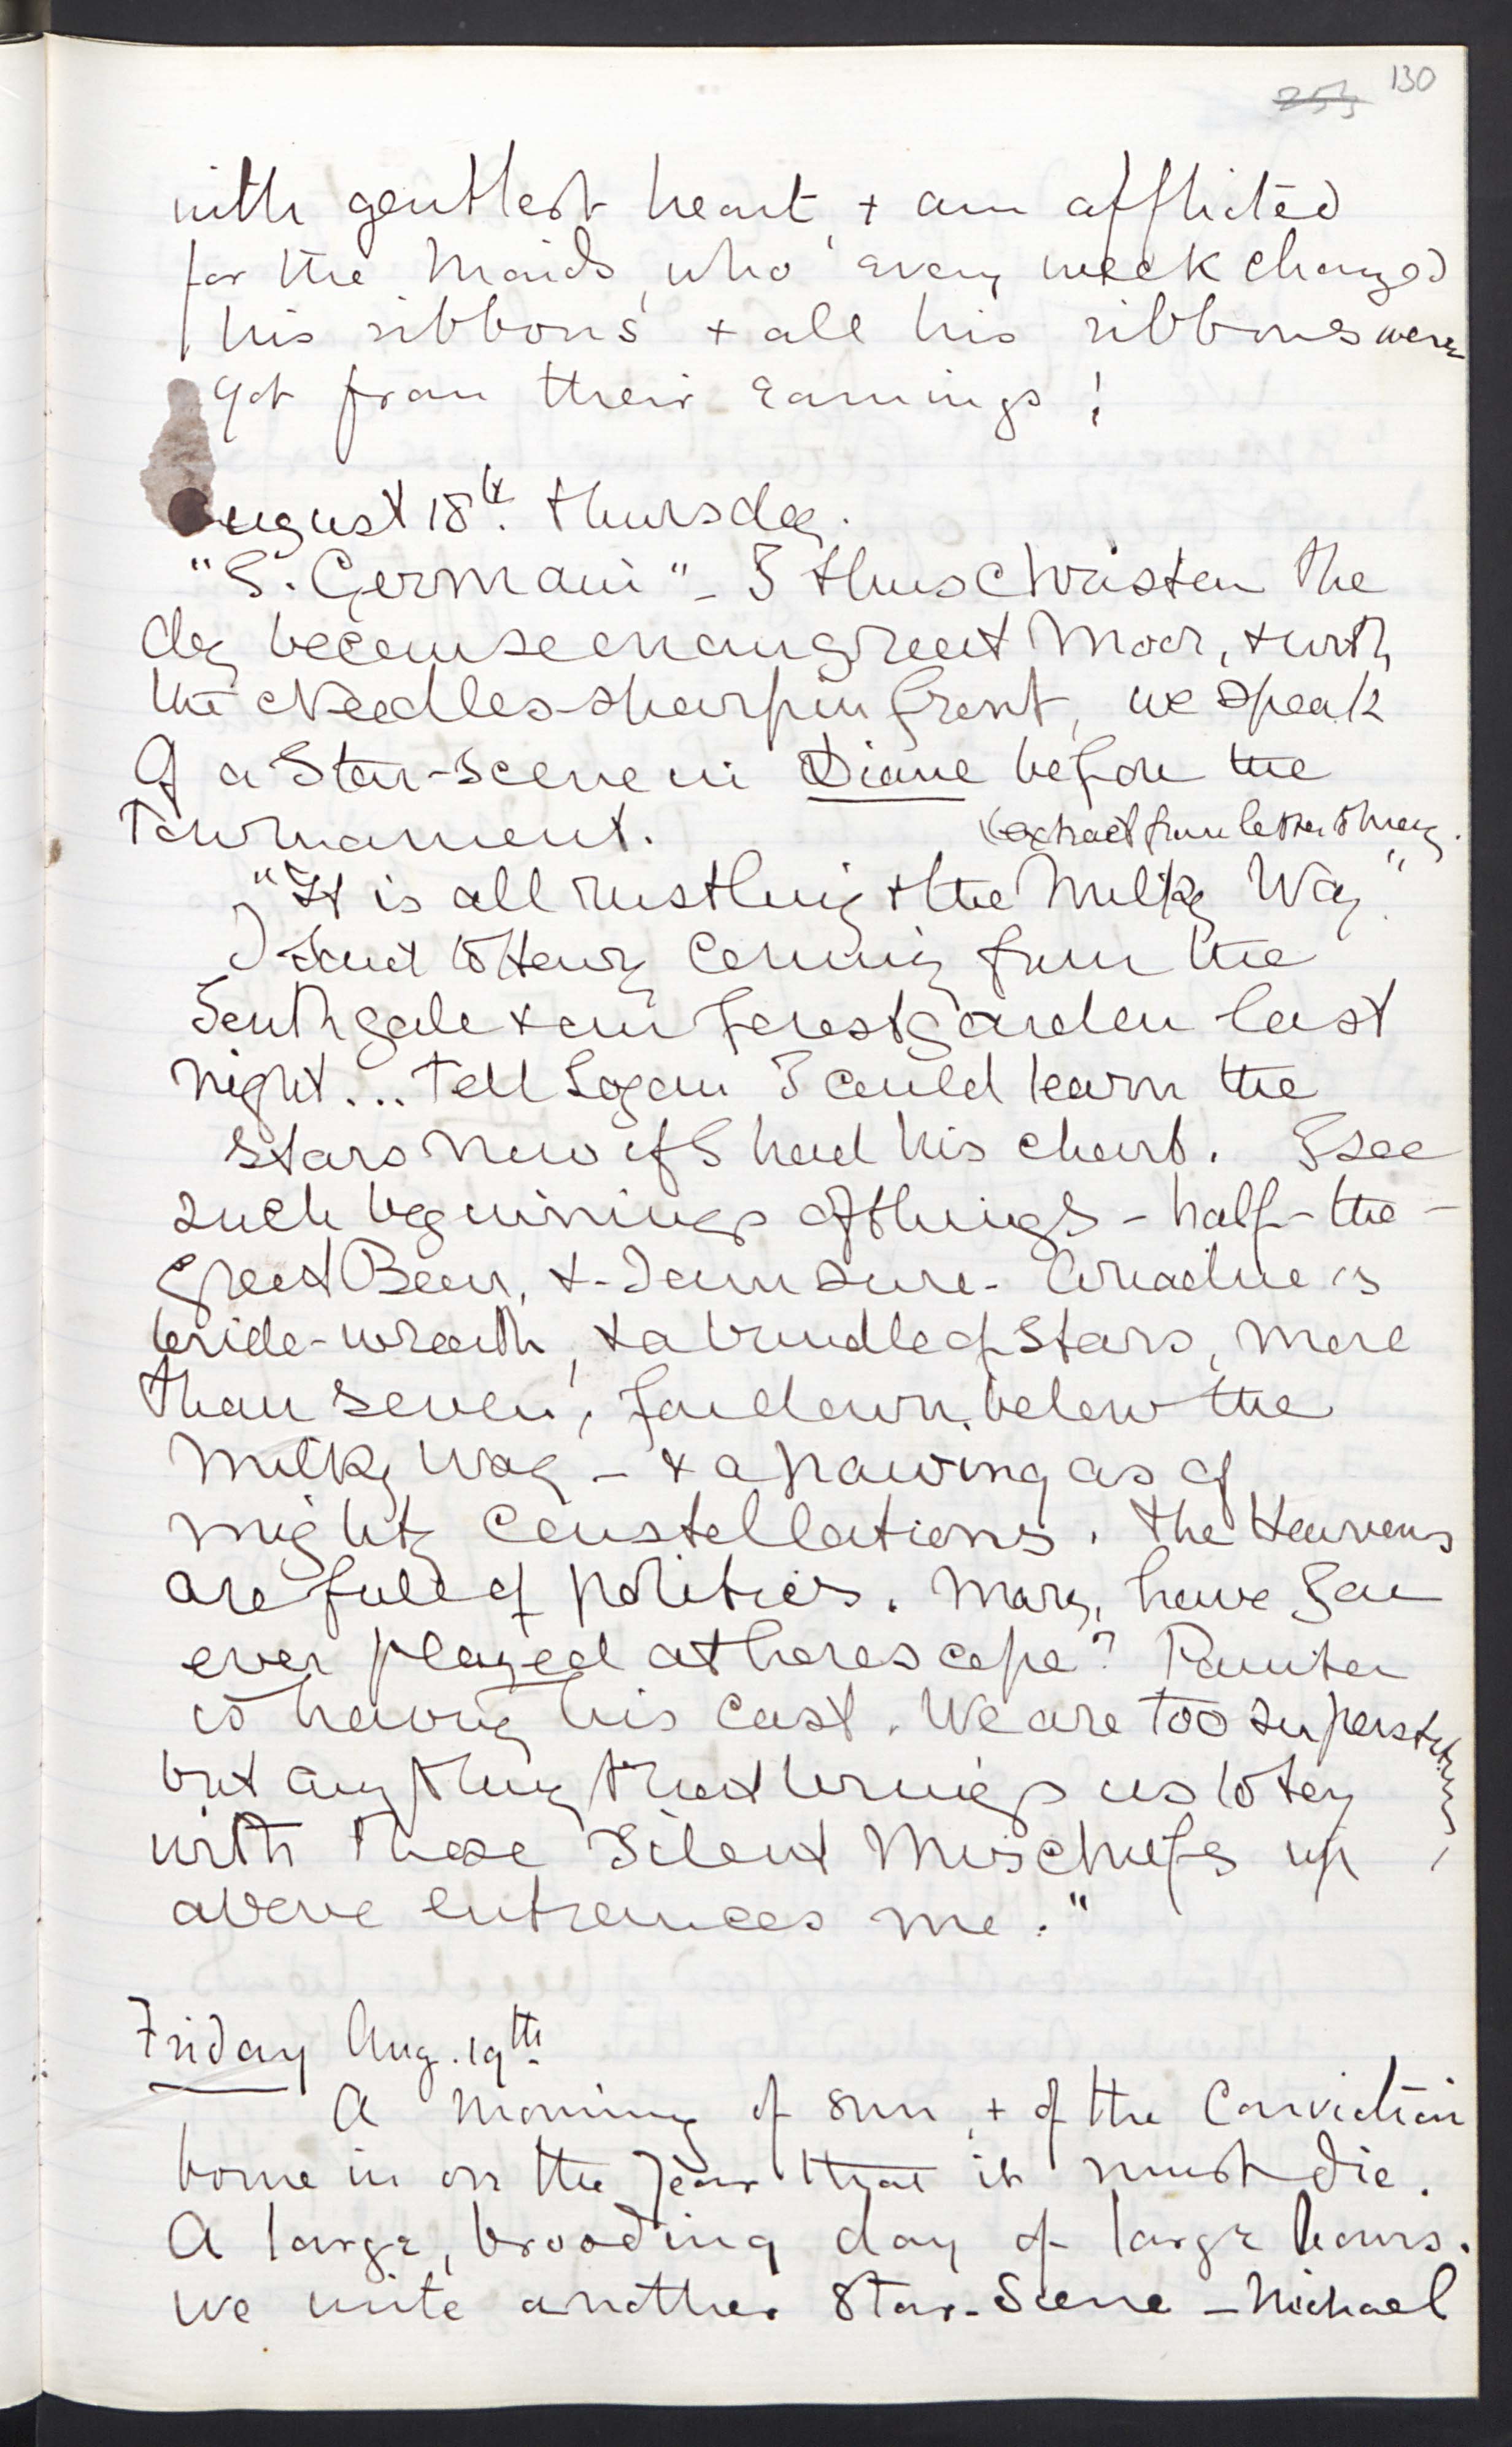 130
253
with gentlest heart, + am afflicted
for the Maids, who every week changed
his ribbons + all his ribbons were
got from their earnings!
August 18th. Thursday.
"S. Germain" - I thus christen the
day because on our great Moor, & with
the Needles sharp in front, we speak
of a Star-scene in Diane before the
Tournament. (extract from letter to Mary.
"It is all rustling & the Milky Way."
I said to Henry coming from the
South gale & our forest garden last
night... Tell Logan I could learn the
stars now if I had his chart. I see
such beginnings of things - half - the -
Great Bear, & - I am sure - Ariadne's
bride-wreath, & a bundle of stars, more
than seven, far down below the
Milky Way - & a pawing as of
mighty constellations. The Heavens
are full of politics. Mary, have you
ever played at horoscope? Painter
is having his cast. We are too superstitious,
but anything that brings us to key
with those Silent Mischiefs up
above entrances me."
Friday Aug. 19th.
A morning of sun, + of the conviction
borne in on the year that it must die.
A large, brooding day of large hours.
We write another Star-Scene - Michael